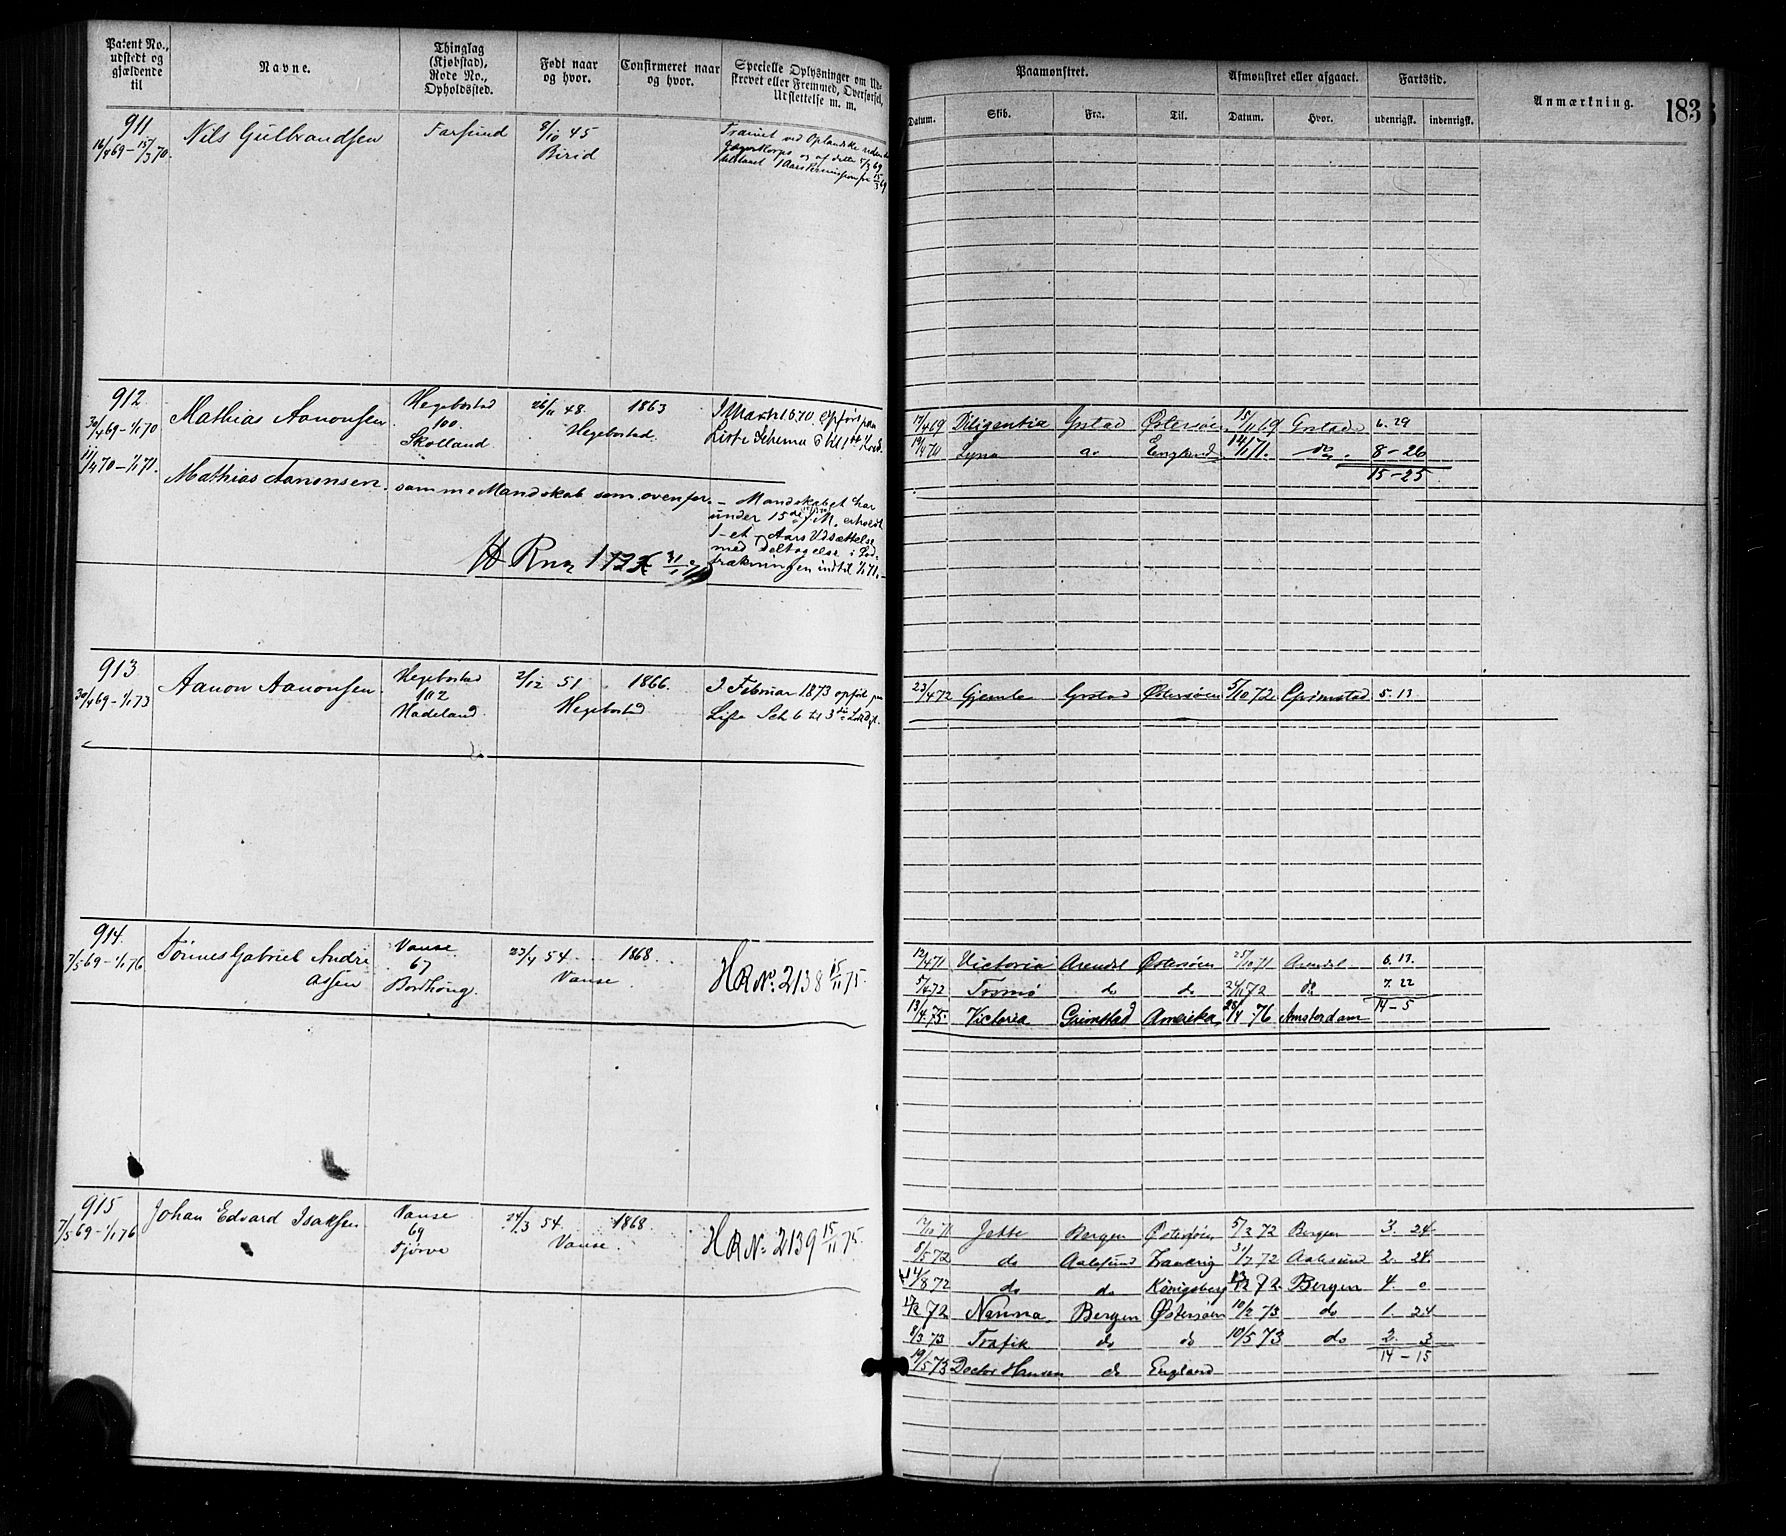 Patent No., udstedt og gjældende til
Navne.
Thinglag (Kjøbstad), Rode No., Opholdssted.
Født naar og hvor.
Confirmeret naar og hvor.
Specielle Oplysninger om Udskrevet eller Fremmed, Overførsel, Udslettelse m. m.
Paamønstret.
Afmønstret eller afgaaet.
Fartstid.
Anmærkning.
183
Datum. Skib. Fra. Til. Datum. Hvor. udenrigsk. indenrigsk.
911
16/4 69 - 15/3 70.
Nils Gulbrandsen
Farsund
8/10 45
Birid
912
30/4 69 - 1/1 70
Mathias Aanonsen
Hegebostad
100.
Skolland
26/11 48.
1863
Hegebostad.
I Marts 1870 opført paa
Liste Schema 6 til 1ste Lodd.
17/4 69 Diligentia Grstad Østersøen 15/11 69 Grstad 6. 29
19/4 70 Lyna do England 14/1 71. do. 8 - 26
15 - 25
11/4 70 - 1/1 71.
Mathias Aanonsen. samme Mandskab som ovenfor. - Mandskabet har
under 15de
1-et Aars Udsættelse
med Deltagelse i Lod-
trækningen indtil 1/1 71. -
913
30/4 69 - 1/1 73
Aanon Aanonsen
Hegebostad
102
Hadeland.
2/12 51
1866.
Hegebostad
I Februar 1873 opført paa
Liste Sch 6 til 3die
23/4 72 Gjemle Grstad Østersøen 5/10 72 Grimstad 5. 13
914.
7/5 69 - 1/1 76
Tönnes Gabriel Andre
assen
Vanse.
67
Bordhoug.
23/4 54.
1868.
Vanse.
HR No. 2138 15/11 75.
12/4 71 Victoria Arendal Østersøen 25/10 71 Arendal 6. 13.
5/4 72 Tromø do do 24/11 72 do 7. 22
14 - 5
13/4 75. Victoria Grimstad Amerika, 28/4 76 Amsterdam
915
7/5 69 - 1/1 76
Johan Edvard Isaksen
Vanse
69
Tjörve
24/3 54.
1868.
Vanse.
HR No. 2139 15/11 75.
71 Jette Bergen Østersøen 5/2 72 Bergen 3. 24.
8/5 72 do Aalesund 31/7 72 Aalesund 2. 24.
14/8 72 do do Königsberg 72. Bergen 4. 0
72 Nanna Bergen Østersøen 10/2 73 do 1. 24
8/3 73 Trafik do do 10/5 73 do 2. 3
14 - 15
19/5 73 Doctor Hansen do England